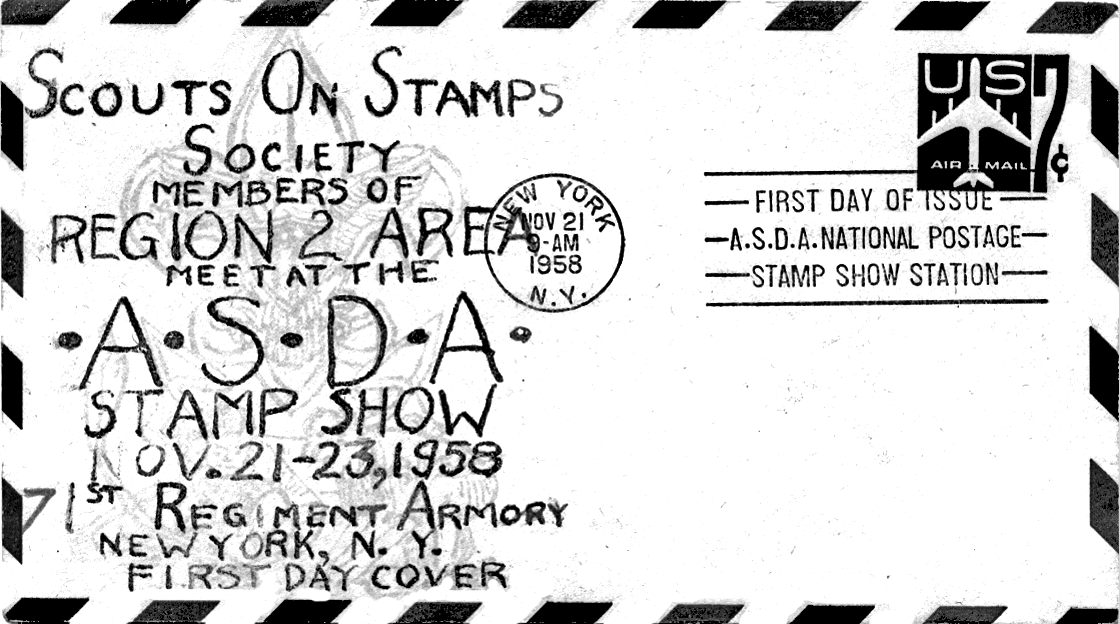 SCOUTS ON STAMPS
SOCIETY
MEMBERS OF
REGION 2 AREA
MEET AT THE
·A·S·D·A·
STAMP SHOW
NOV. 21-23, 1958
71ST REGIMENT ARMORY
NEW YORK, N. Y.
FIRST DAY COVER
NEW YORK
NOV 21
9-AM
1958
N.Y.
US 7¢
AIR MAIL
FIRST DAY OF ISSUE
A.S.D.A. NATIONAL POSTAGE
STAMP SHOW STATION